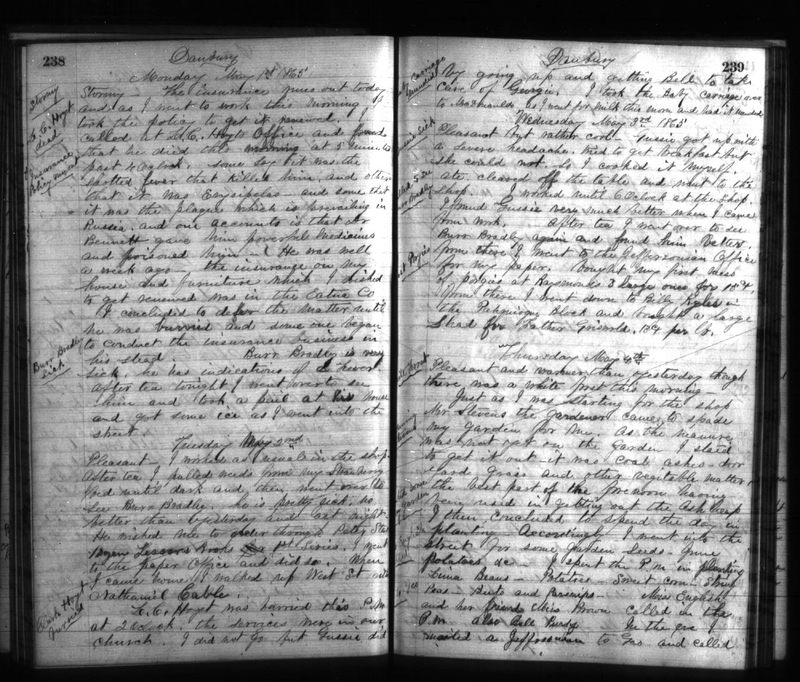 238
Danbury
Monday May 1st 1865
Stormy
Stormy - The insurance runs out today
and as I went to work this morning I
L. C. Hoyt
dead
took the policy to get it renewed, I
called at L.C. Hoyts Office and found
that he died this morning at 5 minutes
Insurance
Policy
past 4 Oclock. Some say it was the
spotted fever that killed him, and others
that it was Erysipelas and some that
it was the plague which is prevailing in
Russia, and one account is that Dr
Bennett gave him powerful medicines
and poisoned him. He was well
a week ago the insurance on my
house and furniture which I wished
to get renewed was in the Eatna Co
I concluded to defer the matter until
he was burried and some one began
to conduct the insurance business in
Burr Bradley
sick
his stead Burr Bradley is very
sick, he has indications of a fever.
After tea tonight I went over to see
him and took a pail at his house
and got some ice as I went into the
street
Tuesday May 2nd
Pleasant - I worked as usual in the shop.
After tea I pulled weeds from my Strawberry
bed until dark and then went over to
see Burr Bradley, he is pretty sick, no
better than yesterday and last night.
He wished me to order through Betty
Lessons 1st Series, I went
to the paper Office and did so. When
I came home I walked up West St with
Nathaniel Cable.
Hoyt
buried
L.C. Hoyt was burried this P.M.
at 2 oclock, the services were in our
church. I did not go but Gussie did
239
Danbury
Carriage
mended
by going up and getting Bell to take
care of Georgie. I took the Baby carriage over
to as I went for milk this morn and had it mended
Wednesday May 3rd 1865
sick
Pleasant but rather cool. Gussie got up with
a severe headache, tried to get breakfast but
she could not. So I cooked it myself,
ate, cleared off the table and went to the
shop. I worked until 6 Oclock at the shop.
I found Gussie very much better when I came
from work. After tea I went over to see
Burr Bradley again and found him better.
from there I went to the Jeffersonian Office
for my paper. Bought my first mess
Porgies
of porgies at Raymonds 3 large ones for
from there I went down to Billy in
the Pahquioque Block and bought a large
Shad for Father Griswold, per lb.
Thursday May 4th
Frost
Pleasant and warmer than yesterday though
there was a white frost this morning -
Just as I was starting for the shop
Mr Stevens the gardener came to spade
my garden for me. As the manure
was not yet on the garden I staid
to get it out it was coal ashes - door
yard grass and other vegitable matter,
the best part of the forenoon having
been used in getting out the ash heap
I then concluded to spend the day in
planting. Accordingly I went into the
street for some garden seeds - June
Potatoes &c I spent the P.M in planting
Lima Beans - Potatoes - Sweet corn - String
Peas - Beets and Parsnips - Miss English
and her friend Miss Brown called in the
P.M. also Bell In the eve I
mailed a Jeffersonian to Geo and called